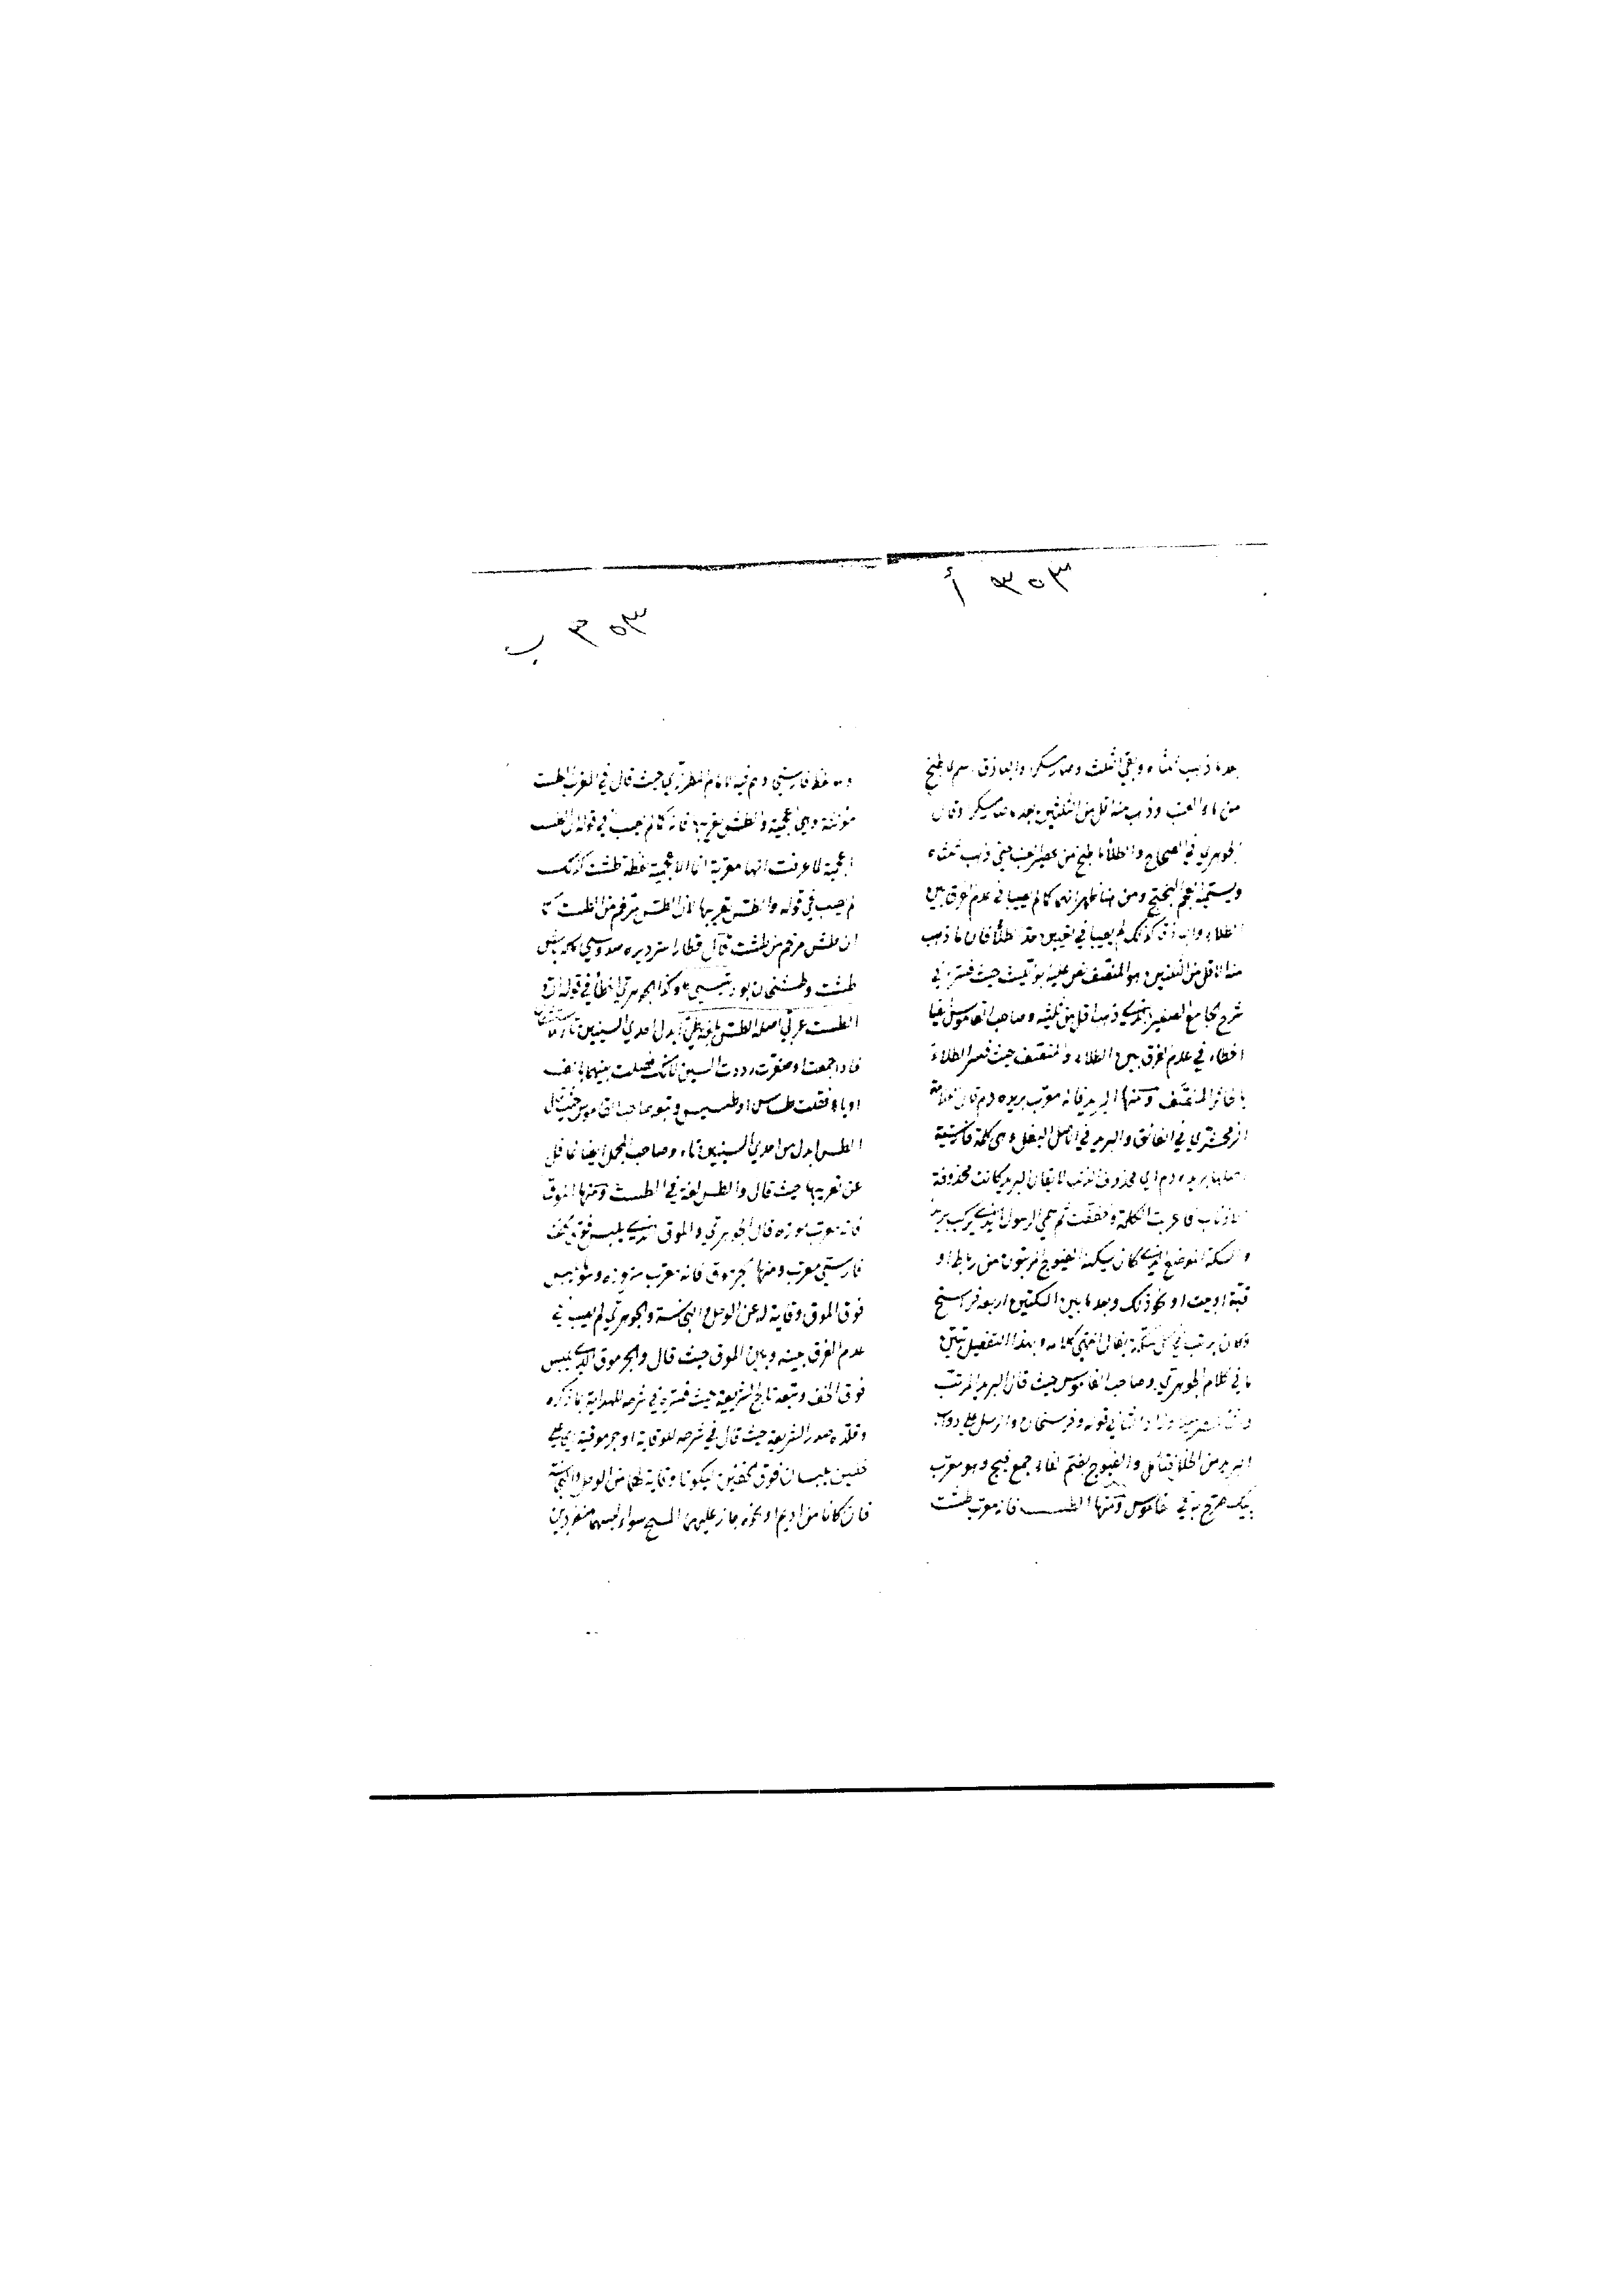 ٣٥٣ أ
بعد ما ذهب ثلثاه وبقي الثلث وصار مسكرا والباذق اسم لما طبخ
من ماء العنب وذهب منه اقل من الثلثين بعد ما صار مسكرا وقال
الجوهري في الصحاح والطلاء ما طبخ من عصير العنب حتى ذهب ثلثاه
ويسميه العجم البختج ومن هنا ظهر انهما كما لم يصيبا في عدم الفرق بين
الطلاء والباذق كذلك لم يصيبا في تعيين حد الطلاء فان ما ذهب
منه الاقل من الثلثين هو المنصف نص عليه ابو الليث حيث فسره في
شرح الجامع الصغير بالذي ذهب اقل من ثلثيه وصاحب القاموس ايضا
اخطاء في عدم الفرق بين الطلاء والمنصف حيث فسر الطلاء
بالخاثر المنصف ومنها البريد فانه معرب بريده دم قال العلامة
الزمخشري في الفائق والبريد في الاصل البغل وهى كلمة فارسية
اصلها بريده دم اي محذوف الذنب لان بغال البريد كانت محذوفة
الاذناب فاعربت الكلمة وخففت ثم سمي الرسول الذي يركبه بريدا
والسكة الموضع الذي كان يسكنه الفيوج المرتبون من رباط او
قبة او بيت او نحو ذلك وبعد ما بين السكتين اربعة فراسخ
وكان يرتب في كل سكة بغال انتهى كلامه وبهذا التفصيل تبين
ما في كلام الجوهري وصاحب القاموس حيث قال البريد المرتب
وزاد الثاني قوله وفرسخان والرسل على دواب
البريد من الخلل فتأمل والفيوج بفتح الفاء جمع فيج وهو معرب
بيك صرح به في القاموس ومنها الطست فانه معرب طشت
٣٥٣ ب
وهو لفظ فارسي وهم فيه الامام المطرزي حيث قال في المغرب الطست
مؤنثة وهى اعجمية والطس تعريبها فانه كما لم يصب في قوله ان الطست
اعجمية لما عرفت انها معربة انما الاعجمية لفظة طشت كذلك
لم يصب في قوله والطس تعريبها لان الطس مرخم من الطست كما
ان طش مرخم من طشت قال
طشت وطشتخان بود وكذا الجوهري اخطأ في قوله ان
الطست عربي اصله الطس بلغة طي ابدل احدى السينين تاء
فاذا جمعت او صغرت رددت السين لانك فصلت بينهما بالف
او ياء فقلت طساس او طسيس وتبعه صاحب القاموس حيث قال
الطس ابدل من احدى السينين تاء وصاحب المجمل ايضا غافل
عن تعريبها حيث قال والطس لغة في الطست ومنها الموق
فانه معرب موزه قال الجوهري والموق الذي يلبس فوق الخف
فارسي معرب ومنها الجرموق فانه معرب سرموزه وهو ما يلبس
فوق الموق وقاية له عن الوحل والنجاسة والجوهري لم يصب في
عدم الفرق بينه وبين الموق حيث قال والجرموق الذي يلبس
فوق الخف وتبعه تاج الشريعة حيث فسره في شرحه للهداية بما ذكره
وقلده صدر الشريعة حيث قال في شرحه للوقاية او جرموقيه اي على
خفين يلبسان فوق الخفين ليكونا وقاية لهما من الوحل والنجاسة
فان كانا من اديم او نحوه جاز عليهما المسح سواء لبسهما منفردين